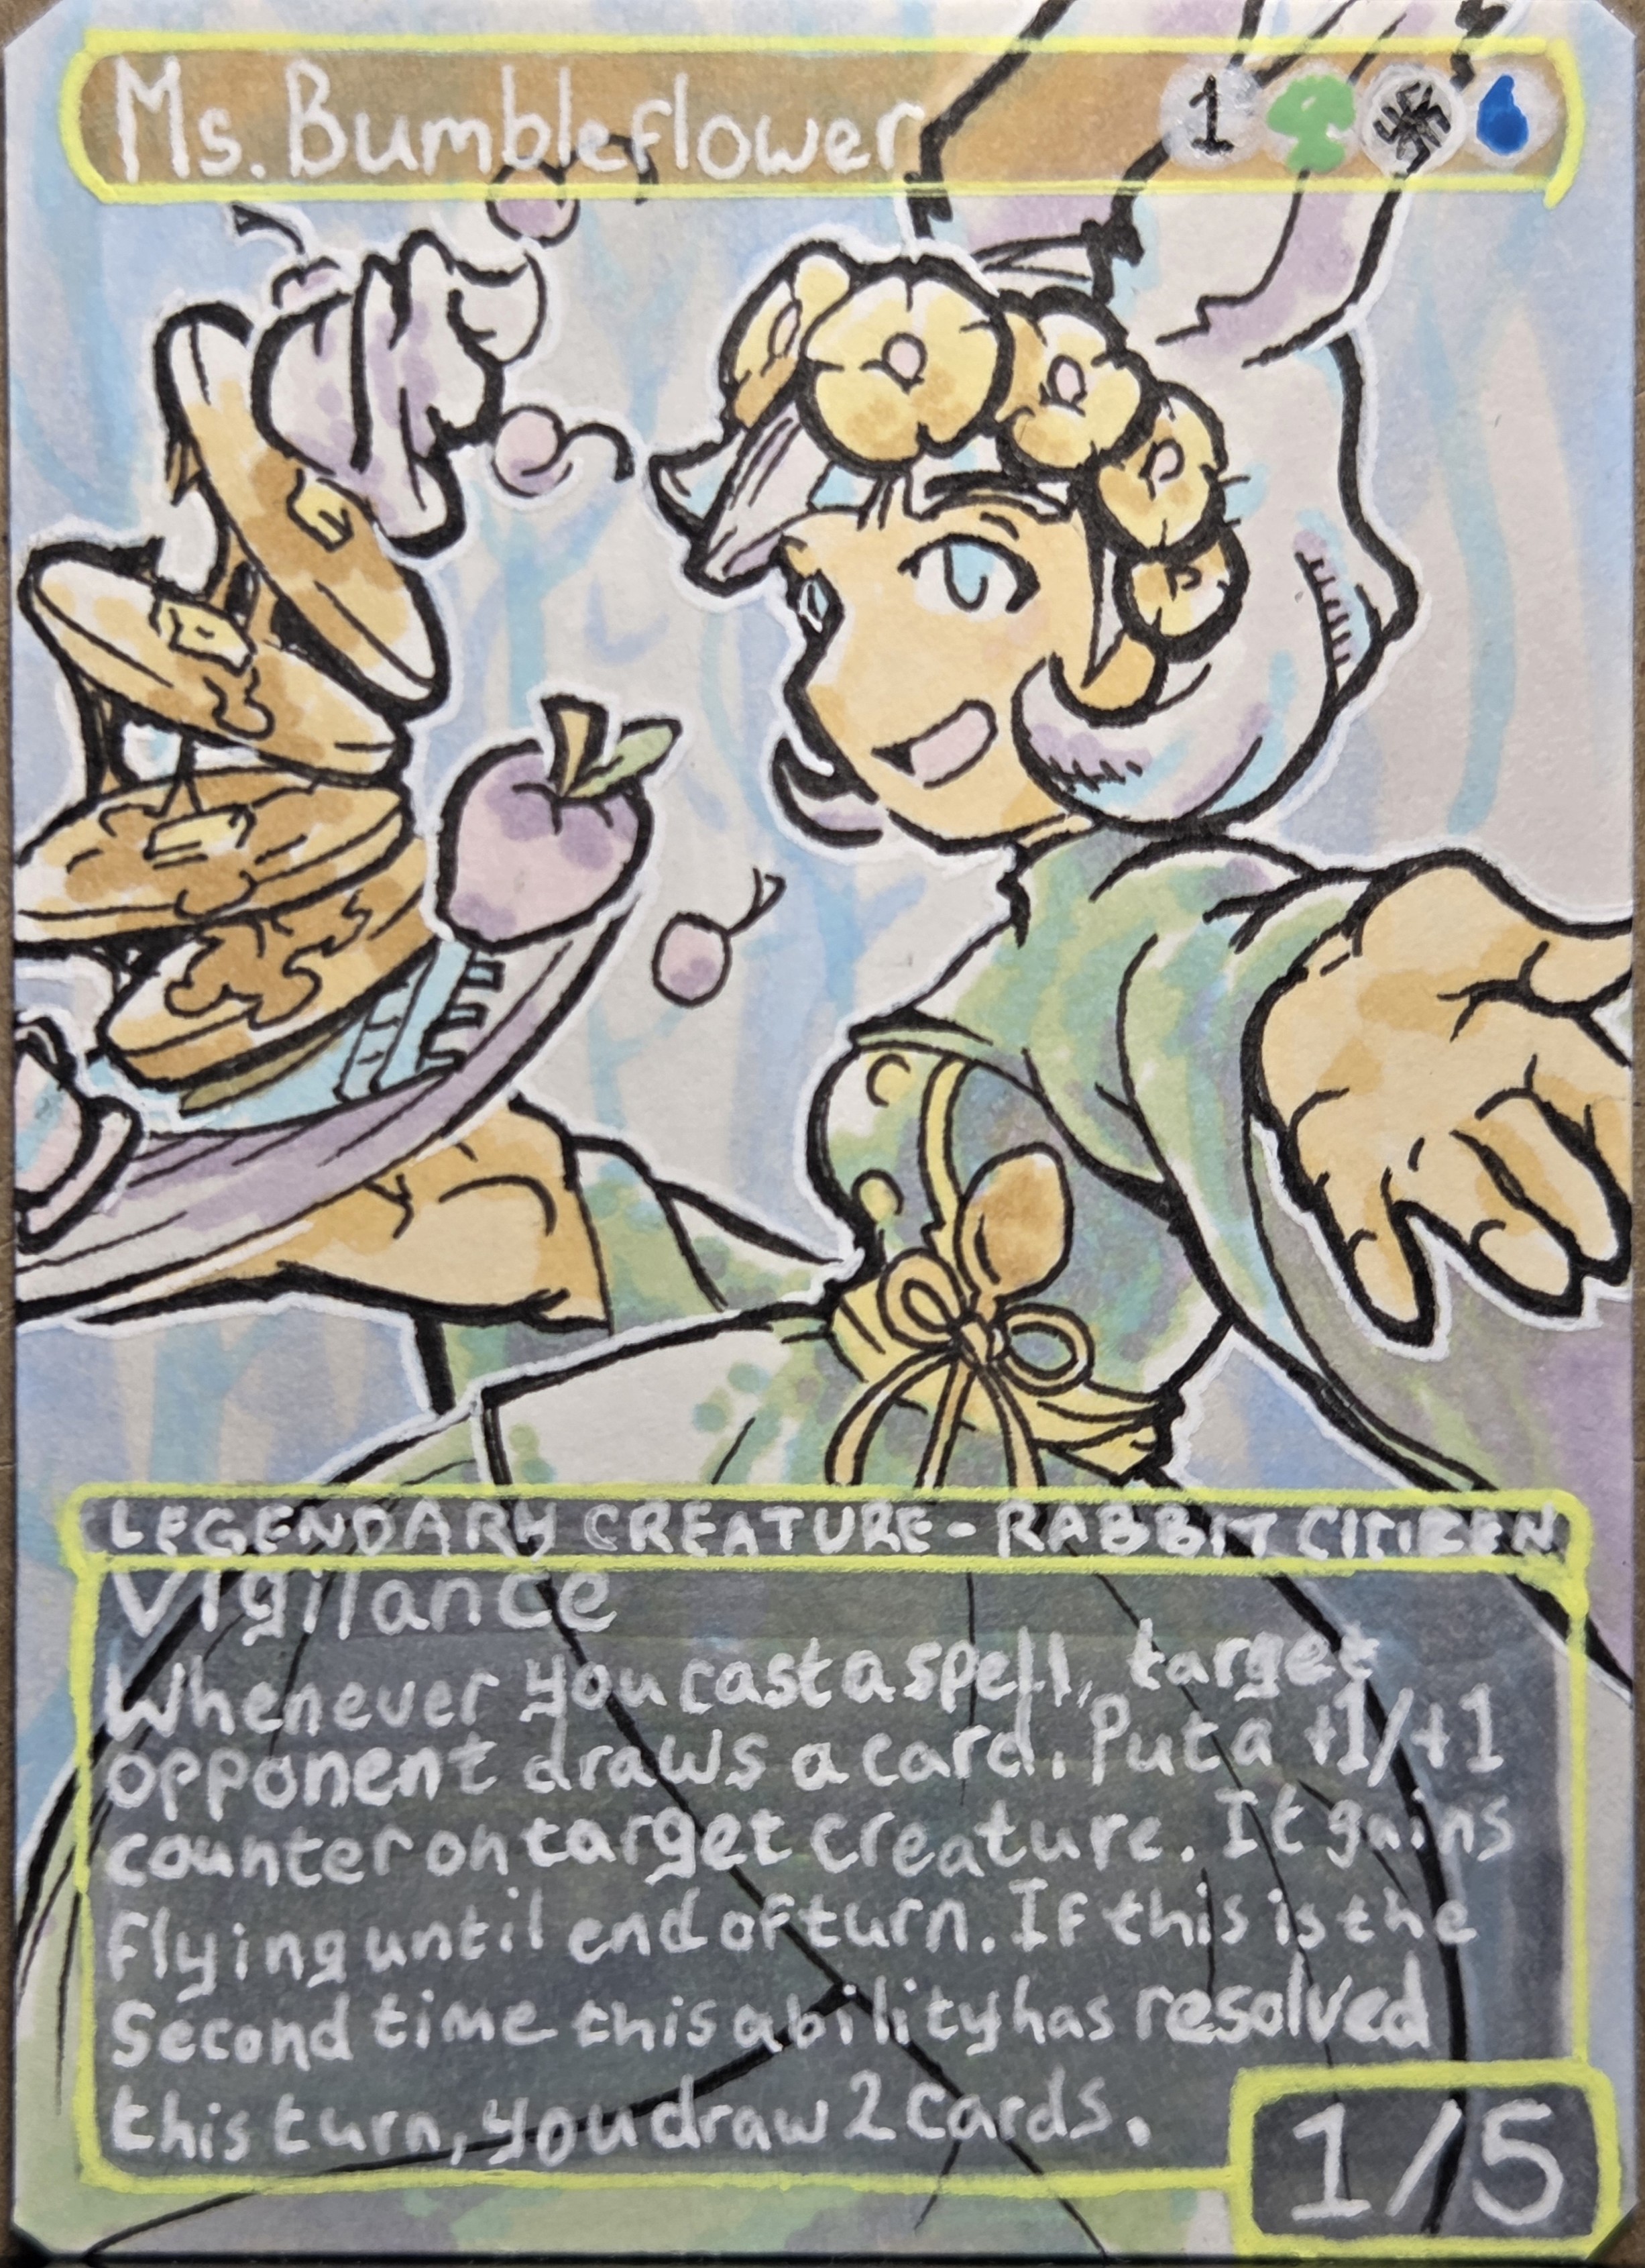 Ms. Bumbleflower 1
LEGENDARY CREATURE - RABBIT CITIZEN
Vigilance
Whenever you cast a spell, target
opponent draws a card. Put a +1/+1
counter on target creature. It gains
flying until end of turn. If this is the
Second time this ability has resolved
this turn, you draw 2 cards.
1/5